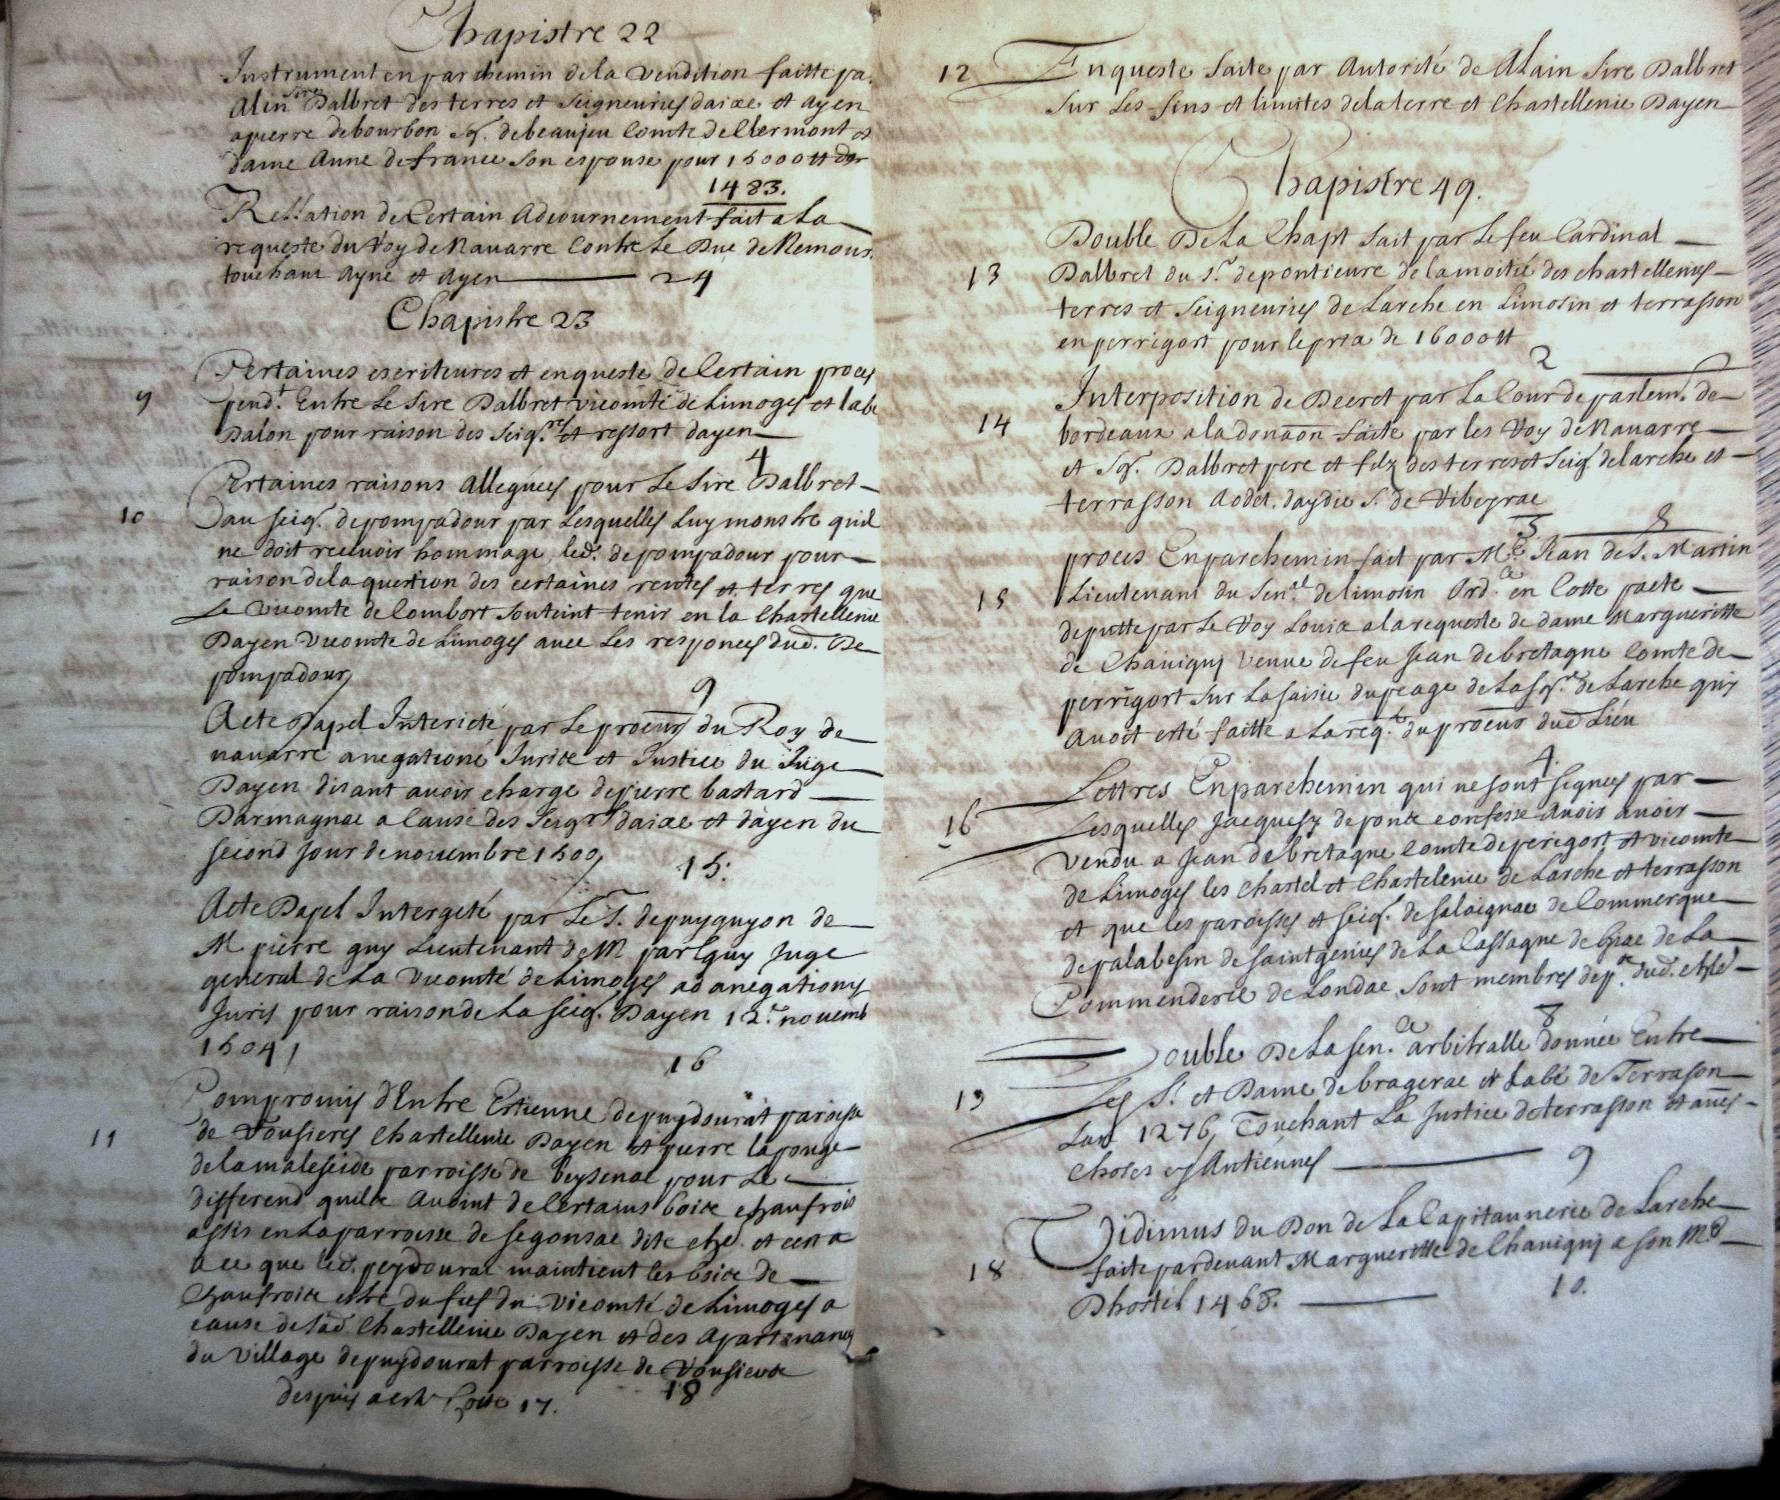 Chapistre 22
Instrument en parchemin de la vendition faitte pa.
Alin sire Dalbret des terres et seigneuries daixe et ayen
a pierre de bourbon sgr. de beaujeu Comte de Clermont et
dame Anne de france son espouse pour 15000 tt dor
1483.
Rellation de Certain Adiournement fait a La
requeste du Roy de Nauarre Contre Le Duc de Nemours.
touchant Ayne et Ayen 24
Chapistre 23
Certaines escriteures et enqueste de Certain proces
9 pend.t Entre Le Sire Dalbret vicomte de Limoges et labe
Dalon pour raison des Seig.res et ressort dayen
4
Certaines raisons alleguées pour Le Sire Dalbret
10 au seig.r de pompadour par Lesquelles Luy monstre quil
ne doit receuoir hommage led. de pompadour pour
raison de la question des certaines rentes et terres que
Le Vicomte de Combort souteint tenir en la Chastellenie
Dayen Vicomte de Limoges auec Les responces dud. De
pompadour
9
Acte Dapel Interieté par Le procur du Roy de
nauarre anegatione Juris et Justice du Juge
Dayen disant auoir charge de pierre bastard
Darmagnac a Cause des Seigres daixe et dayen du
second Jour de nouembre 1500
15.
Acte Dapel Intergeté par Le S. de puyguyon de
M pierre guy Lieutenant de M par Guy Juge
general de La Vicomté de Limoges ad anegationis
Juris pour raison de La seig. Dayen 12.e nouemb
1504
16
Compromis d'Entre Estienne de puydourat paroisse
11 de Vousieres Chastellenie Dayen et pierre la ponge
de la maleseide parroisse de beyssenac pour Le
different quilx Auoint de Certains boix echaufrois
assis en La parroisse de segonsac dite et ce et cen a
a ce que led. peydourat maintient les boix de
Chaufroix estre du fief du Vicomté de Limoges a
cause de sad Chastellenie Dayen et des Apartenances
du Village de puydourat parroisse de Vousieres
18
despuis acte Cotte 17.
12 Enqueste faite par Autorité de Alain Sire Dalbret
Sur Les fins et limites de la terre et Chastellenie Dayen
Chapistre 49.
Double De La Chapt fait par Le feu Cardinal
13 Dalbret du S.r de pontieure de la moitié des chastellenies
terres et Seigneuries de Larche en Limosin et terrasson
en perrigort pour le prix de 16000 tt
2
Interposition de Decret par La Cour de parlem.t de
14 bordeaux a la donaon faite par les Roy de Nauarre
et Sgr. Dalbret pere et filz des terres et Seig.r de larche et
terrasson a odet daydie S. de Ribeyrac
3 8
proces En parchemin fait par M.e Jean de S. Martin
15 Lieutenant du Sen.al de limosin Ord.e en Cette parte
deputte par Le Roy Louix a la requeste de dame Margueritte
de Chauigny veuue de feu Jean de bretagne Comte de
perrigort sur La saisie du peage de La Sgr.e de Larche quy
auoit esté faitte a La req.te du procur dud Lieu
4.
Lettres En parchemin qui ne sont signes par
16 Lesquelles Jacques de pons confesse Auoir auoir
Vendu a Jean de bretagne Comte de perigort et vicomte
de Limoges les Chastel et Chastelenie de Larche et terrasson
et que les paroisses et seig.r de salaignac de Commerque
de palabesin de saint genies de La Cassagne de brac de La
Commenderie de Condac sont membres dep.ce dud. chle
8
Double De La sen.ce arbitralle donnée Entre
19 Les S.r et Dame de bragerac et Labé de Terrason
Lan 1276, Touchant La Justice de terrasson et aues
choses y Antiennes 9
Vidimus du Don de La Capitainerie de Larche
18 faite par deuant Margueritte de Chauigny a son M.e
Dhostel 1468. 10.